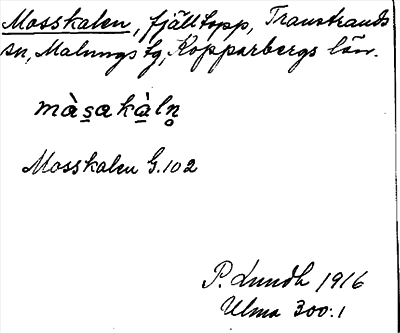 Mosskalen, fjälltopp, Transtrands
sn, Malungs tg, Kopparbergs län.
màs̠akà̠ln̥
Mosskalen G.102
P. Lundh 1916
Ulma 300:1